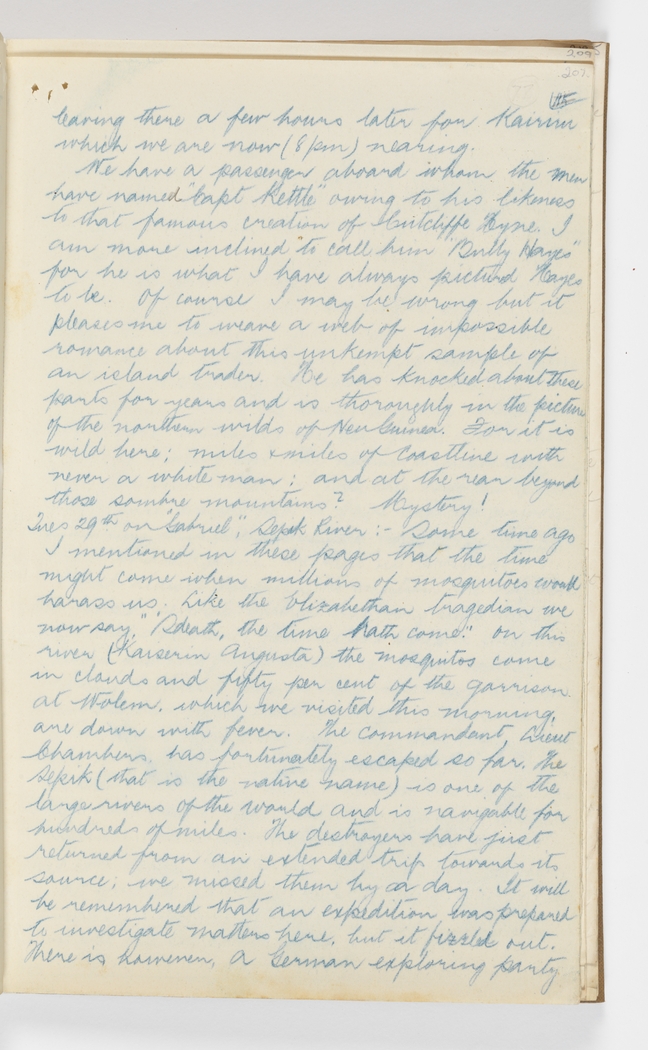 209
207.
leaving there a few hours later for Kairiru
which we are now (8 pm) nearing.
We have a passenger aboard whom the men
have named "Capt Kettle" owing to his likeness
to that famous creation of Cutcliffe Hyne. I
am more inclined to call him "Bully Hayes"
for he is what I have always pictured Hayes
to be. Of course I may be wrong but it
pleases me to weave a web of impossible
romance about this unkempt sample of
an island trader. He has knocked about these
parts for years and is thoroughly in the picture
of the northern wilds of New Guinea. For it is
wild here; miles & miles of coastline with
never a white man; and at the rear beyond
those sombre mountains? Mystery!
Tues 29th on "Gabriel", Sepik River:- Some time ago
I mentioned in these pages that the time
might come when millions of mosquitoes would
harass us. Like the Elizabethan tragedian we
now say, "Sdeath, the time hath come." On this
river (Kaiserin Augusta) the mosquitos come
in clouds and fifty per cent of the garrison
at Wolem, which we visited this morning,
are down with fever. The commandant, Lieut
Chambers, has fortunately escaped so far. The
Sepik (that is the native name) is one of the
large rivers of the world and is navigable for
hundreds of miles. The destroyers have just
returned from an extended trip towards its
source; we missed them by a day. It will
be remembered that an expedition was prepared
to investigate matters here, but it fizzled out.
There is however, a German exploring party